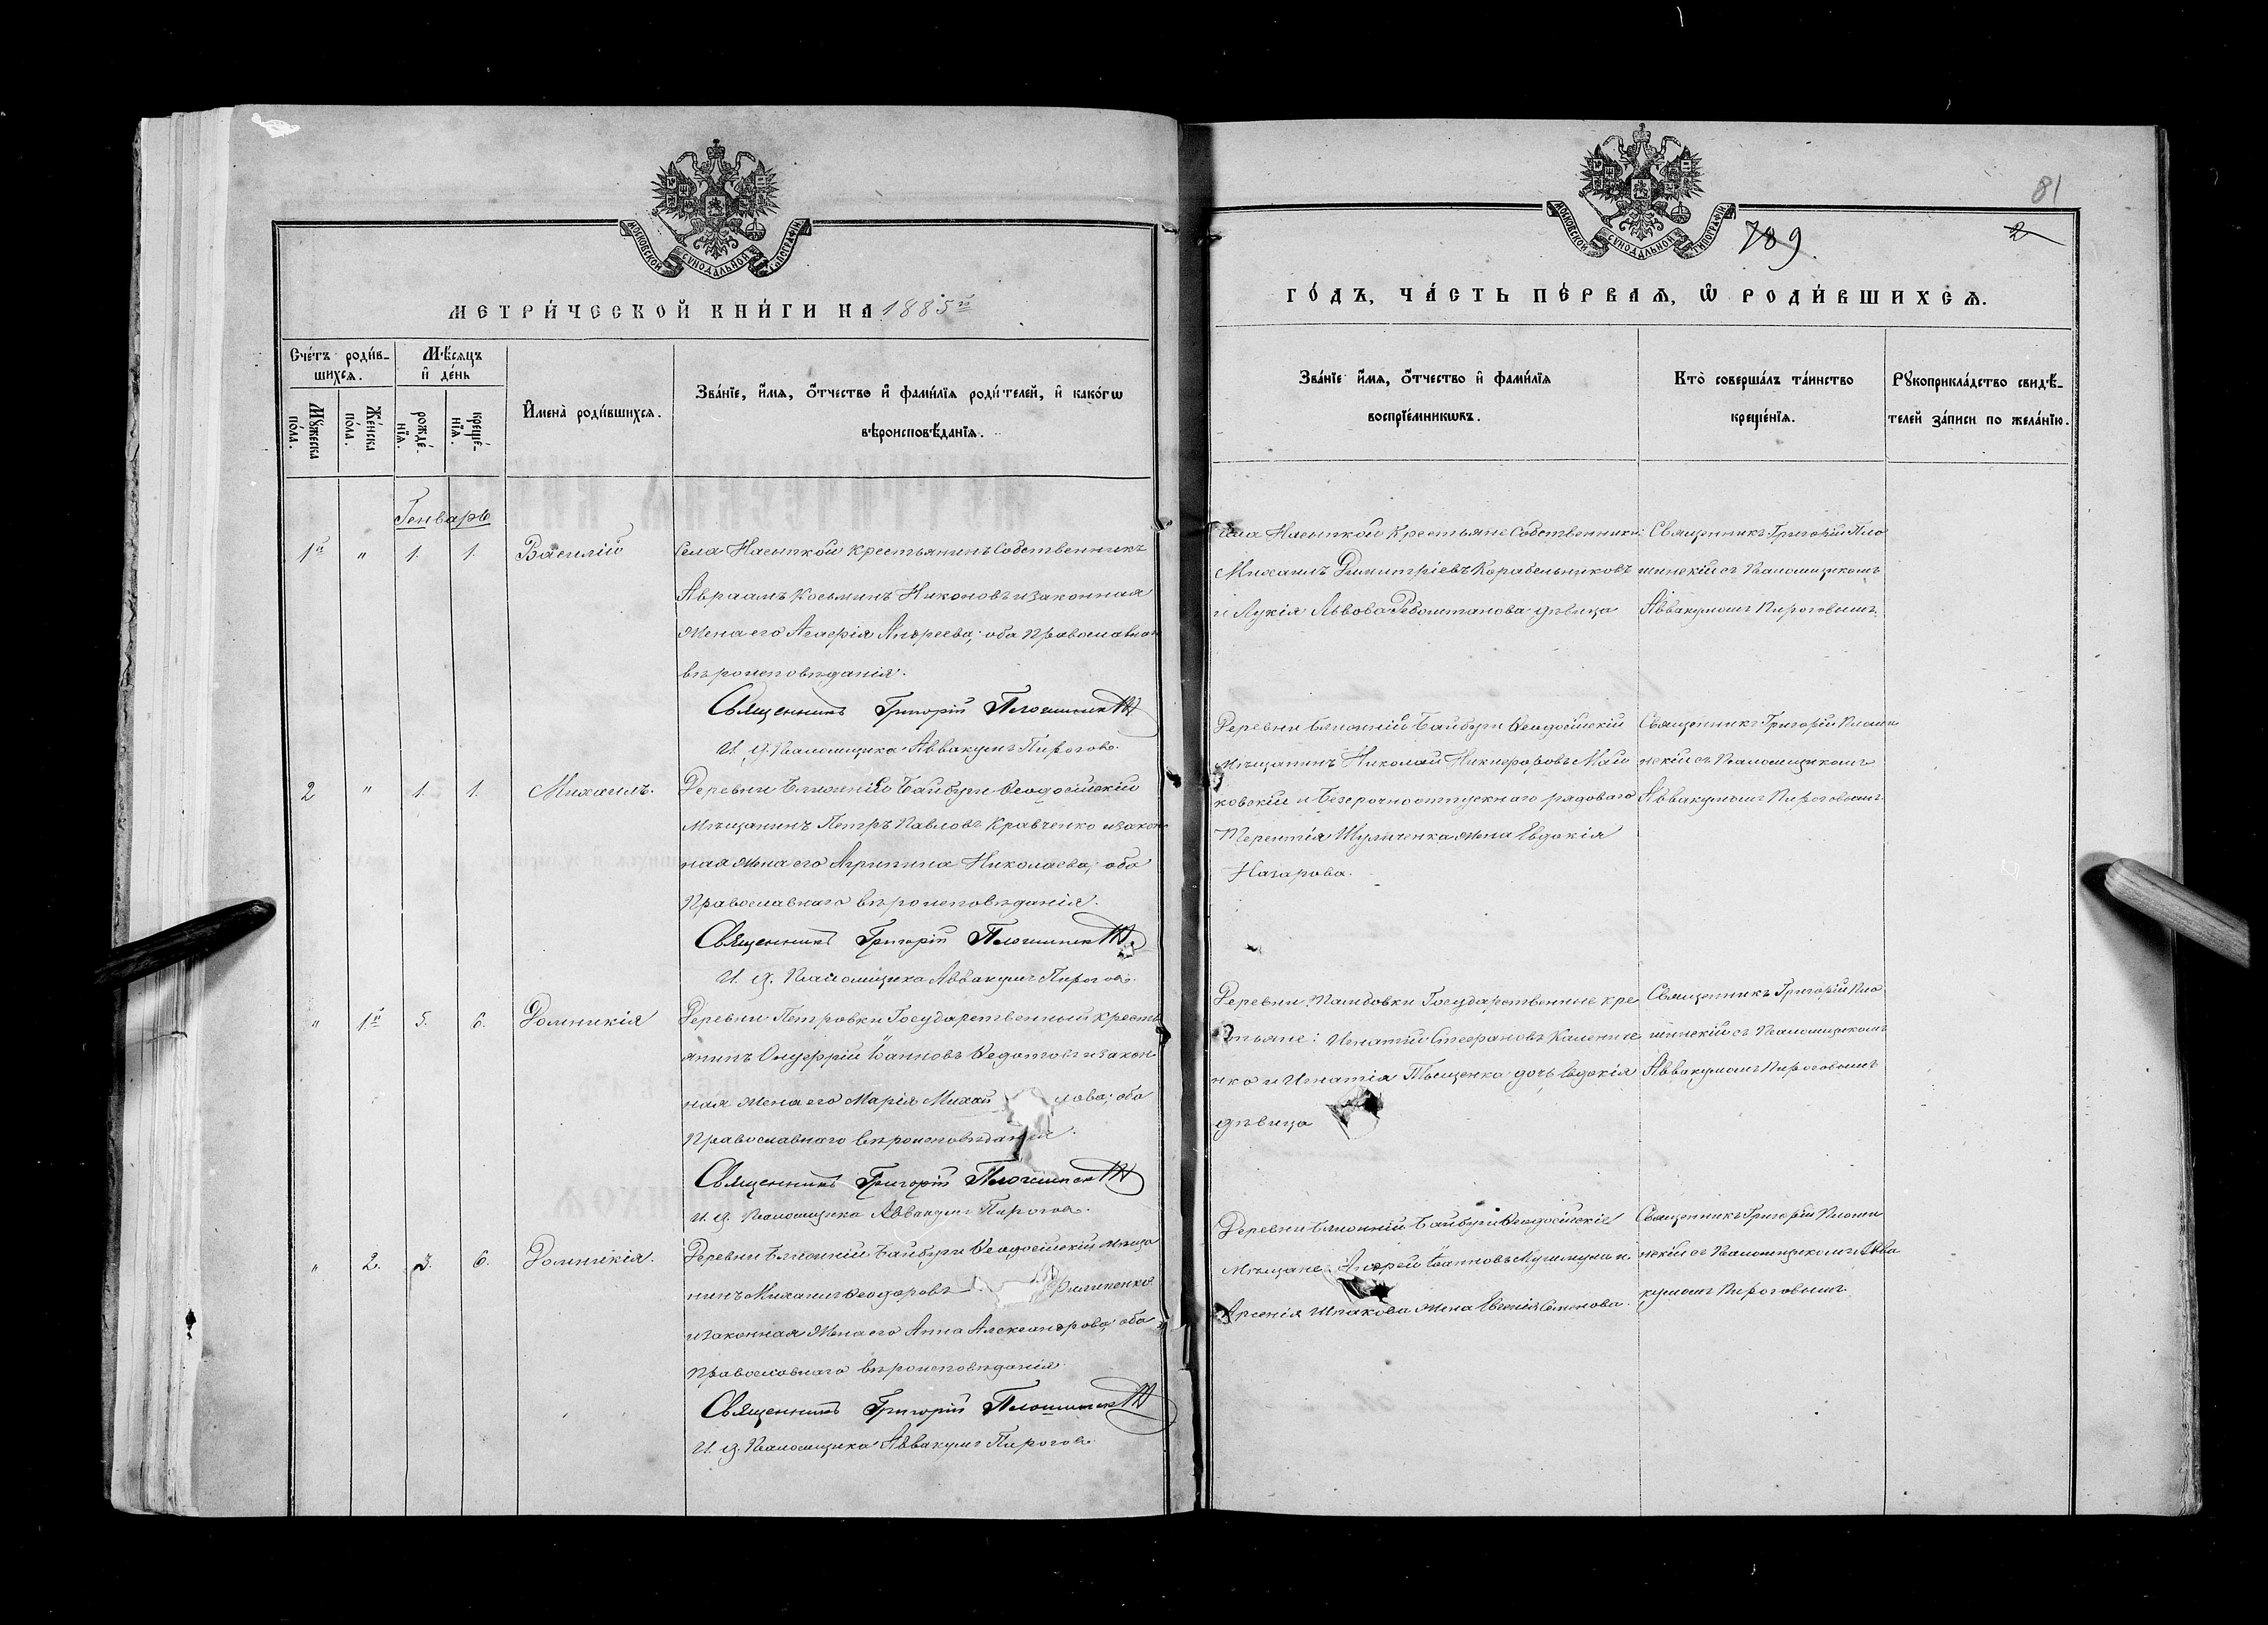 МОСКОВСКОЙ СУНОДАЛЬНОЙ ТИПОГРАФІИ
МЕТРИ́ЧЕСКОЙ КНИ́ГИ НА 1885й
Счётъ роди́в-
шихсѧ.
Мѣ́сѧцъ
и҆ де́нь
Мꙋ́жеска
по́ла.
Же́нска
по́ла.
рожде́-
нїѧ.
креще́-
нїѧ.
И҆мена̀ роди́вшихсѧ.
Зва́нїе, и҆́мѧ, ѻ҆́тчество и҆ фами́лїѧ роди́телей, и҆ како́гѡ
вѣроисповѣ́данїѧ.
Генварь
1й " 1. 1. Василій
Села Насыпкой крестьянинъ собственникъ
Авраамъ Косьминъ Никоновъ и законная
жена его Агафія Андреева; оба Православнаго
вѣроисповѣданія.
Священникъ Григорій Плошинскій
И. д. Псаломщика Аввакумъ Пироговъ.
2 " 1. 1. Михаилъ.
Деревни Ближній Байбуги Ѳеодосійскій
мѣщанинъ Петръ Павловъ Кравченко и закон
ная жена его Агрипина Николаева; оба
Православнаго вѣроисповѣданія.
Священникъ Григорій Плошинскій
И. д. Псаломщика Аввакумъ Пироговъ.
" 1й 5. 6. Домникія
Деревни Петровки Государственный кресть
янинъ Онуфрій Іоанновъ Ѳедотовъ и закон
ная жена его Марія Михай лова; оба
Православнаго вѣроисповѣданія.
Священникъ Григорій Плошинскій
И. д. Псаломщика Аввакумъ Пироговъ.
" 2. 3. 6. Домникія.
Деревни Ближній Байбуги Ѳеодосійскій мѣща
нинъ Михаилъ Ѳеодоровъ Филипенко
и законная жена его Анна Александрова; оба
Православнаго вѣроисповѣданія
Священникъ Григорій Плошинскій
И. д. Псаломщика Аввакумъ Пироговъ
81
МОСКОВСКОЙ СУНОДАЛЬНОЙ ТИПОГРАФІИ
789.
2
ГО́ДЪ, ЧА́СТЬ ПЕ́РВАѦ, Ѡ҆ РОДИ́ВШИХСѦ.
Зва́нїе и҆́мѧ, ѻ҆́тчество и҆ фами́лїѧ
воспрїе́мникѡвъ.
Кто̀ соверша́лъ та́инство
креще́нїѧ.
Рꙋкоприкла́дство свидѣ́-
телей за́писи по жела́нїю.
Села Насыпкой Крестьяне Собственники:
Михаилъ Димитріевъ Корабельниковъ
и Лукія Львова дѣвица
Священникъ Григорій Пло
шинскій съ Псаломщикомъ
Аввакумомъ Пироговымъ.
Деревни Ближній Байбуги Ѳеодосійскій
мѣщанинъ Николай Никифоровъ Май
ковскій и безсрочноотпускнаго рядоваго
Терентія Шульченка жена Евдокія
Назарова.
Священникъ Григорій Плоши
нскій съ Псаломщикомъ
Аввакумомъ Пироговымъ
Деревни Государственные кре
стьяне: Игнатій Стефановъ Калениче
нко и Игнатія Тыщенка дочь Евдокія
дѣвица
Священникъ Григорій Пло
шинскій съ Псаломщикомъ
Аввакумомъ Пироговымъ
Деревни Ближній Байбуги Ѳеодосійскіе
мѣщане: Андрей Іоанновъ и
Арсенія Шпакова жена Евгенія Семенова.
Священникъ Григорій Плоши
нскій съ Псаломщикомъ Авва
кумомъ Пироговымъ